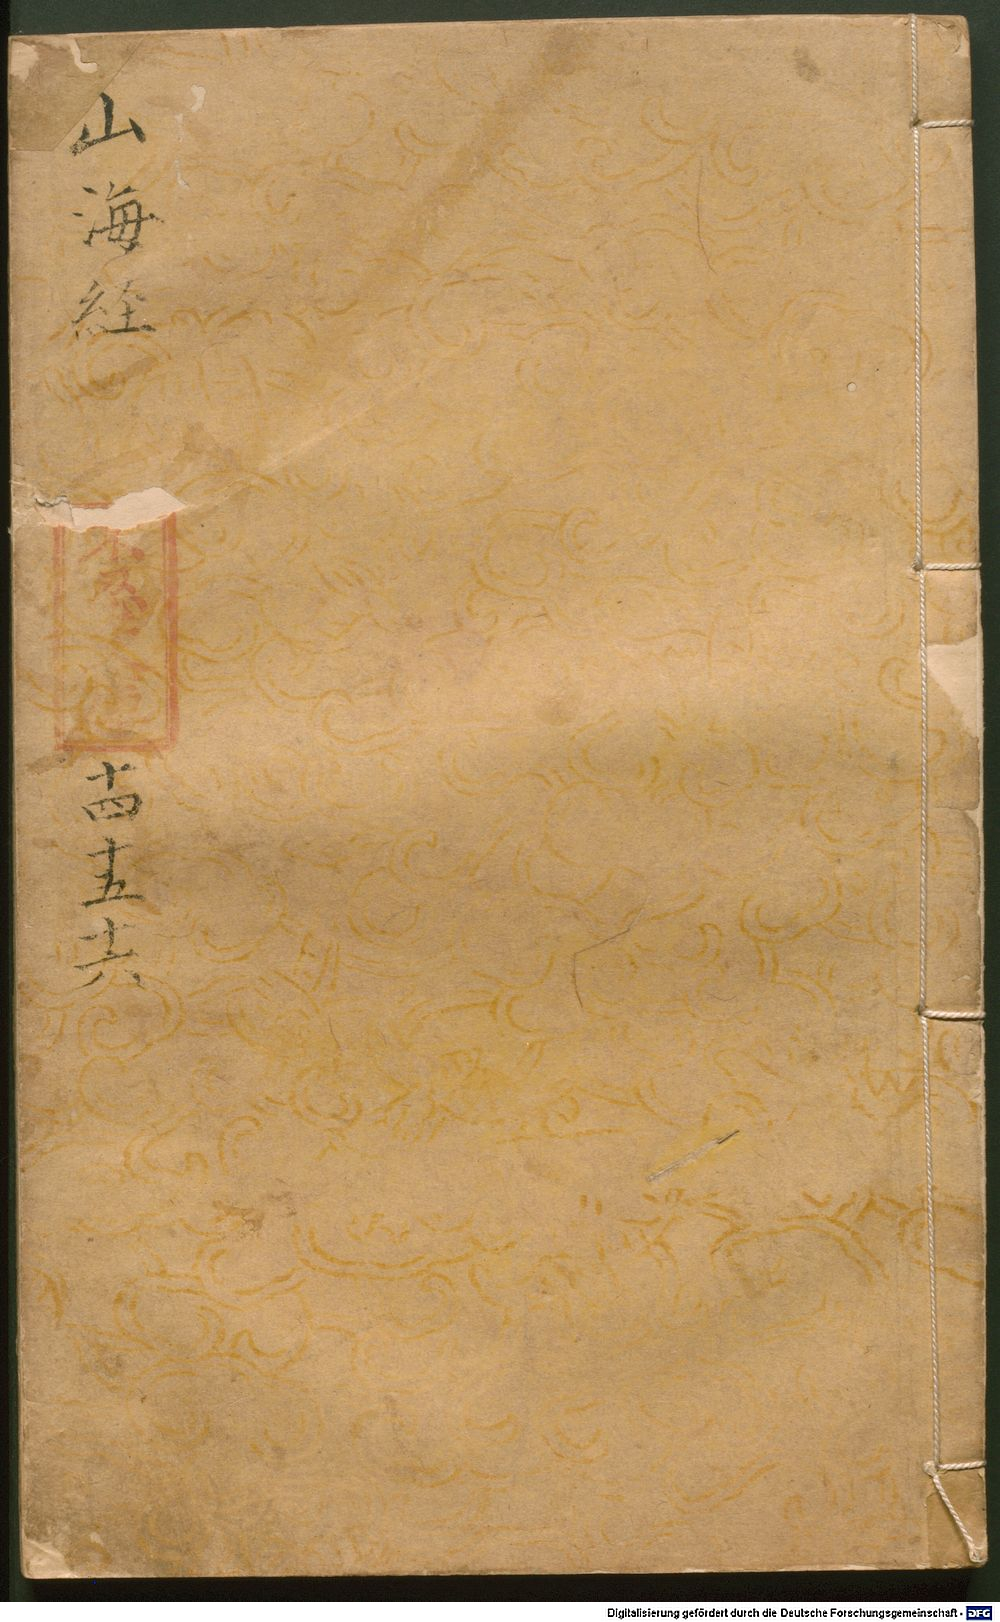 山海経
十四十五十六
Digitalisierung gefördert durch die Deutsche Forschungsgemeinschaft - DFG